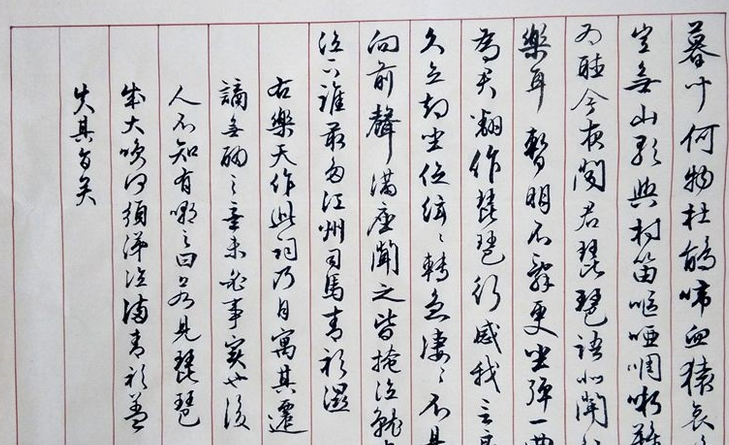 暮何物杜鵑啼血猿哀
豈無山歌與村笛嘔啞啁哳難
為聽今夜聞君琵琶語如聞
樂耳暫明不辭更坐彈一曲
為君翻作琵琶行感我言良
久立却坐促絃〻轉急淒〻不是
向前聲滿座聞之皆掩泣就中
泣下誰最多江州司馬青衫濕
右樂天作此詞乃自寓其遷
謫無聊之意未必事實也後
人不知有嘲之曰若見琵琶
成大笑何須涕泣滿青衫蓋
失其旨矣